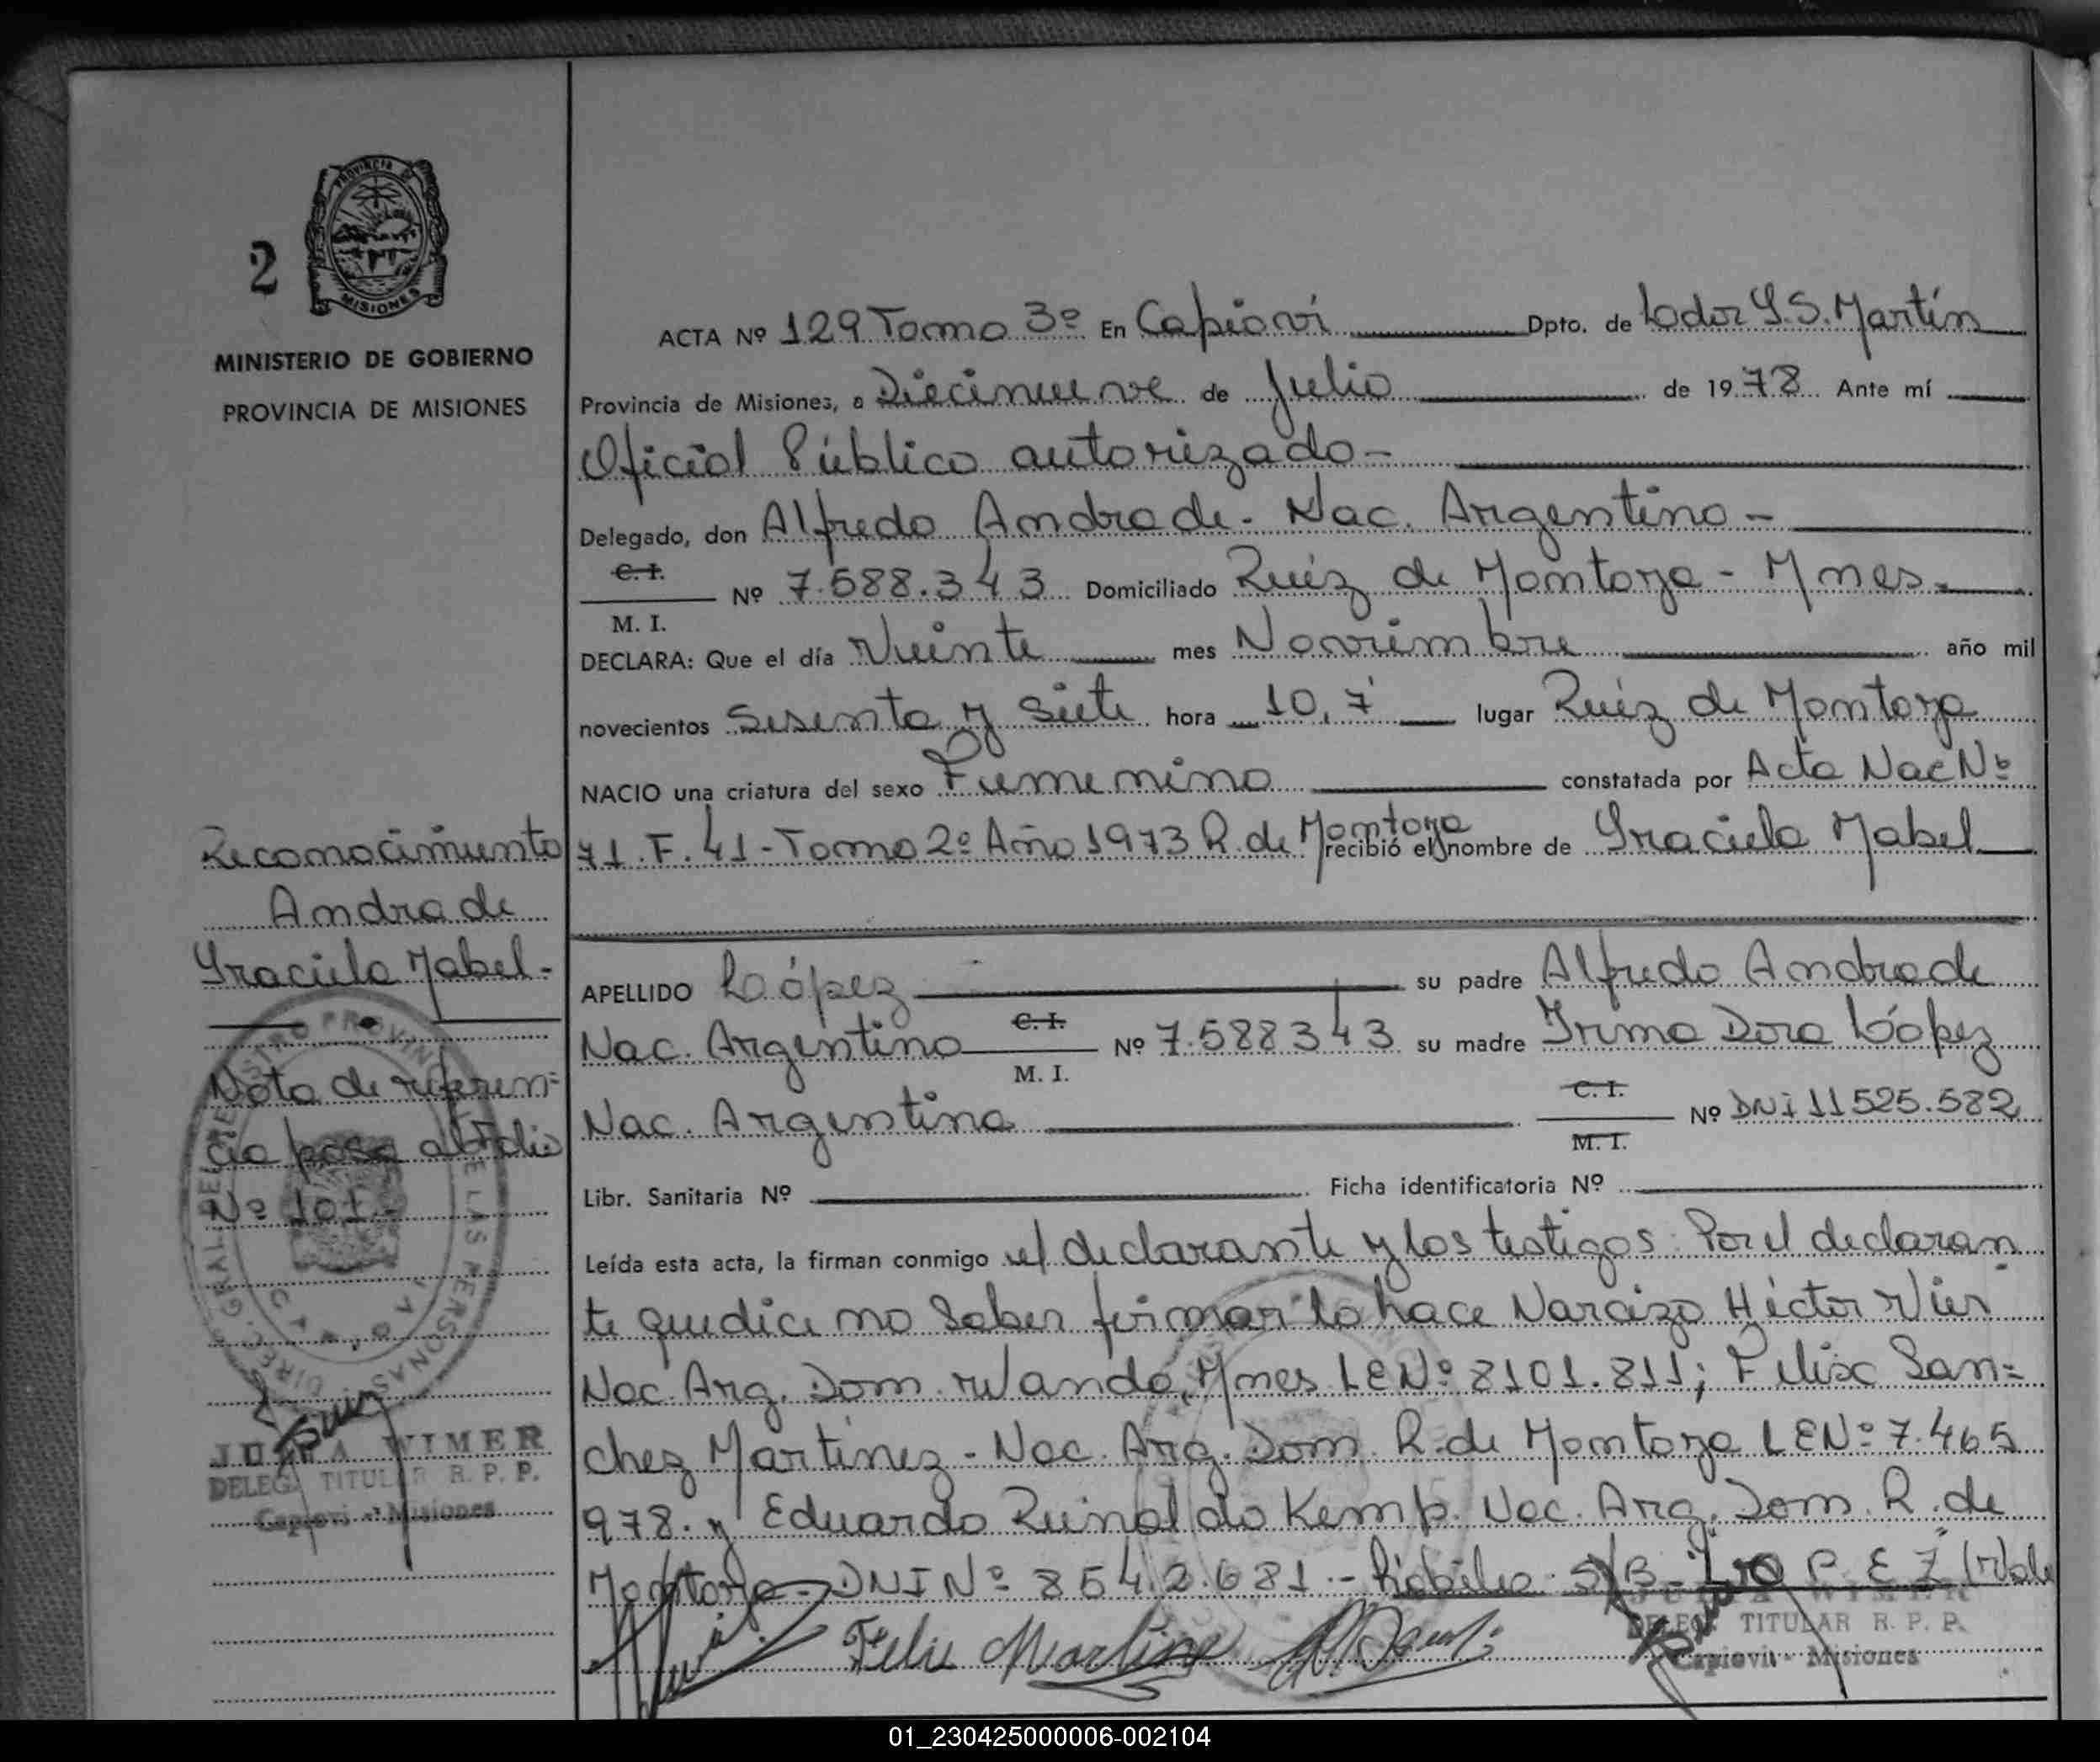 2
PROVINCIA DE
MISIONES
MINISTERIO DE GOBIERNO
PROVINCIA DE MISIONES
Reconocimiento
Andrade
Graciela Mabel-
Nota de referen=
cia pasa al folio
Nº 101.-
DELEG. TITULAR R. P. P.
Capiovi - Misiones
ACTA Nº 129 Tomo 3º En Capiovi Dpto. de Ldor G.S. Martín
Provincia de Misiones, a Diecinueve de Julio de 1978 Ante mí
Oficial Público autorizado-
Delegado, don Alfredo Andrade. Nac. Argentino-
C. I.
M. I. Nº 7.588.343 Domiciliado Ruiz de Montoya - Mnes.
DECLARA: Que el día Veinte mes Noviembre año mil
novecientos Sesenta y Siete hora 10,7 lugar Ruiz de Montoya
NACIO una criatura del sexo Femenino constatada por Acta Nac Nº
71.F.41-Tomo 2º Año 1973 R. de Montoya recibió el nombre de Graciela Mabel
APELLIDO López su padre Alfredo Andrade
Nac. Argentino C. I. M. I. Nº 7.588343 su madre Irma Dora López
Nac. Argentina C. I. M. I. Nº DNI 11525.582
Libr. Sanitaria Nº Ficha identificatoria Nº
Leída esta acta, la firman conmigo el declarante y los testigos. Por el declaran
te que dice no Saber firmar lo hace Narcizo Héctor Vier
Nac. Arg. Dom. Wanda, Mnes LE Nº 8101.811; Felix San=
chez Martinez - Nac. Arg. Dom. R. de Montoya LE Nº 7.465
978. y Eduardo Reinaldo Kemp. Nac. Arg. Dom. R. de
Montoya - DNI Nº 8542.681 - S/B - LOPEZ (Vale
Felix Martinez
DELEG. TITULAR R. P. P.
Capiovi - Misiones
01_230425000006-002104